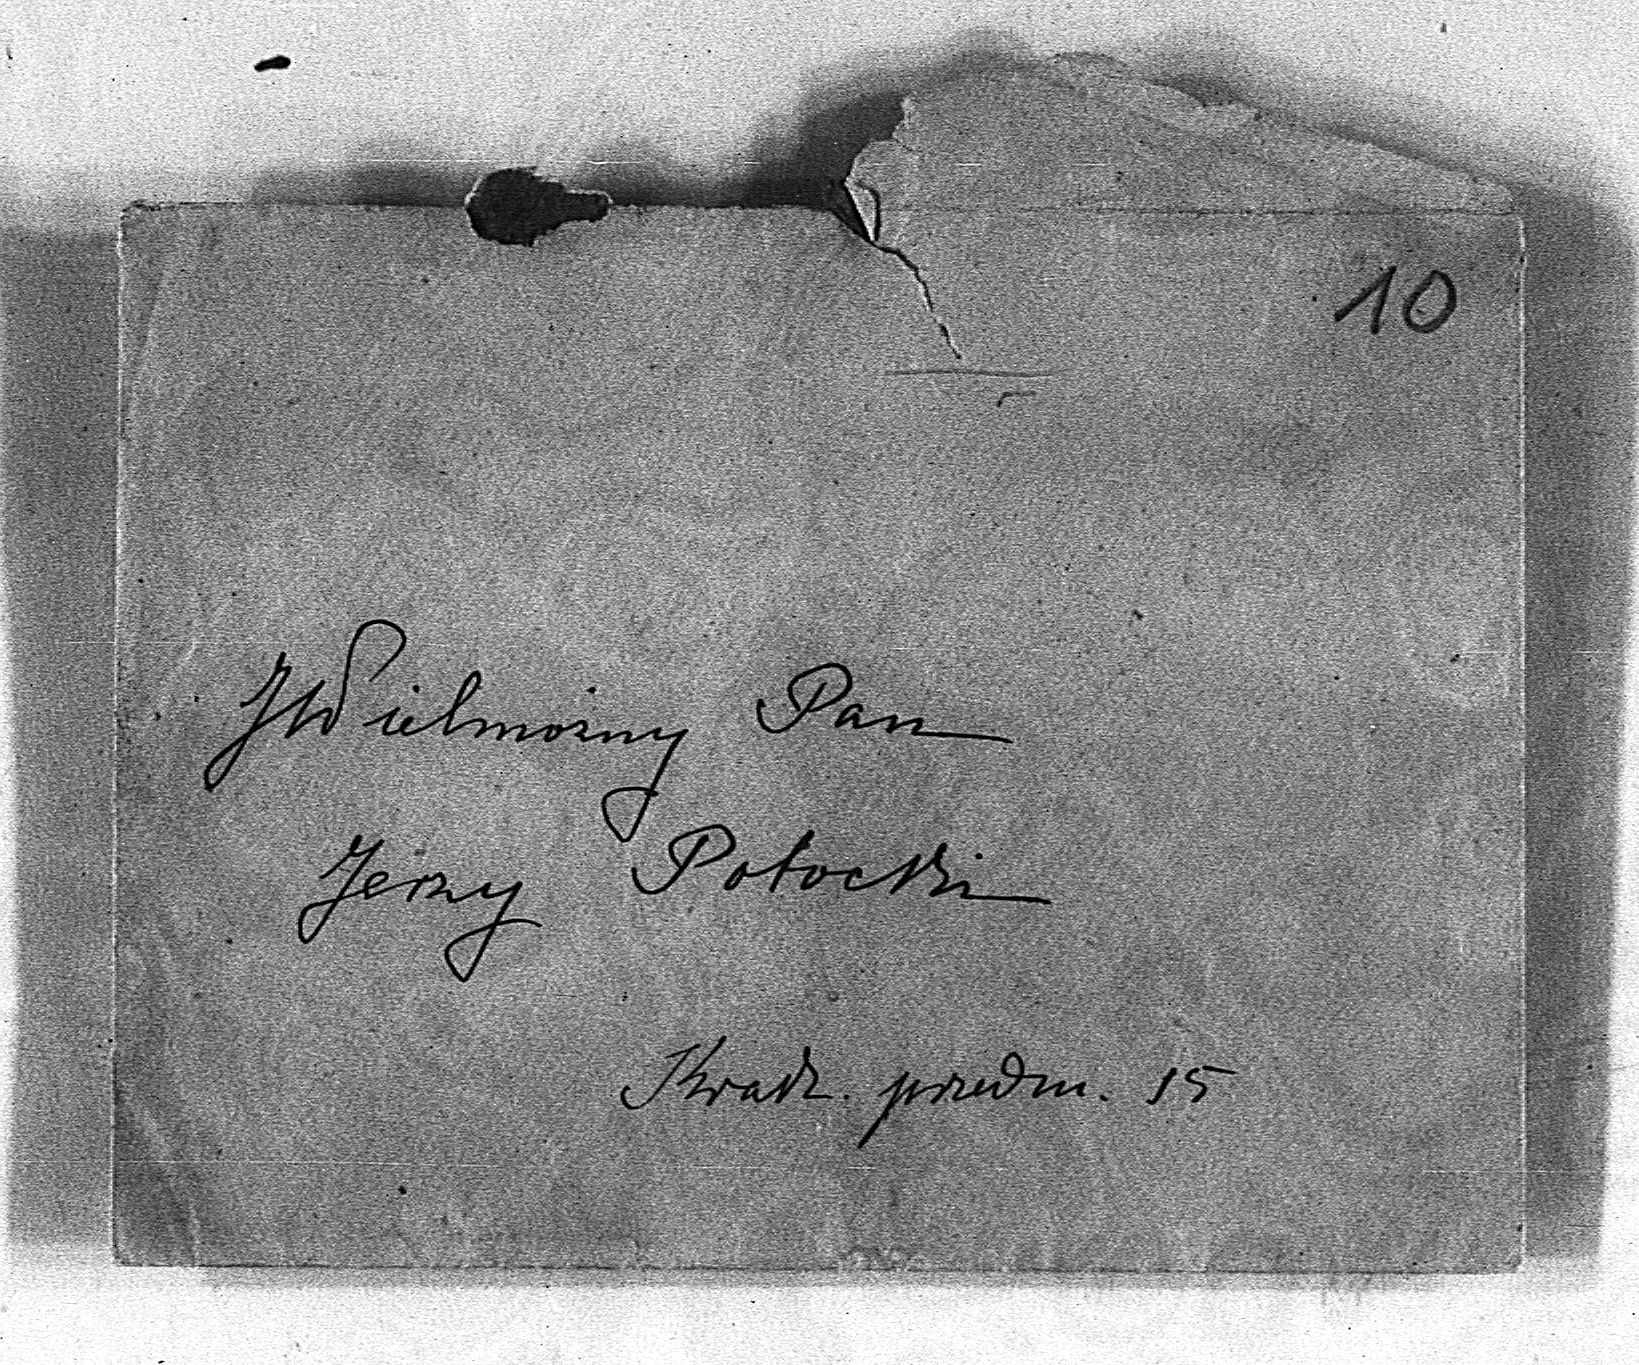 10
JWielmożny Pan
Jerzy Potocki
Krak. przedm. 15